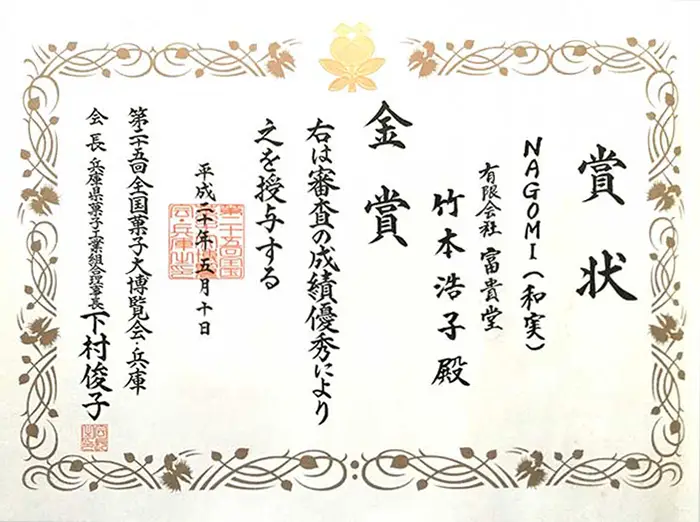 賞状
NAGOMI(和実)
有限会社 富貴堂
竹本浩子殿
金賞
右は審査の成績優秀により
之を授与する
平成二十年五月十日
第二十五回全国菓子大博覧会・兵庫
会長 兵庫県菓子工業組合理事長 下村俊子